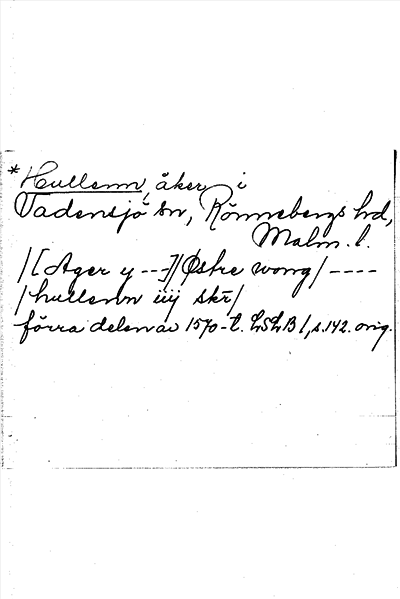 *Hullenn, åker i
Vadensjö sn, Rönnebergs hd,
Malm. l.
/[Ager y ---]/Østre wong/ ----
/hullenn iiij skr/
förra delen av 1570-t. LSLB 1, s. 142. orig.